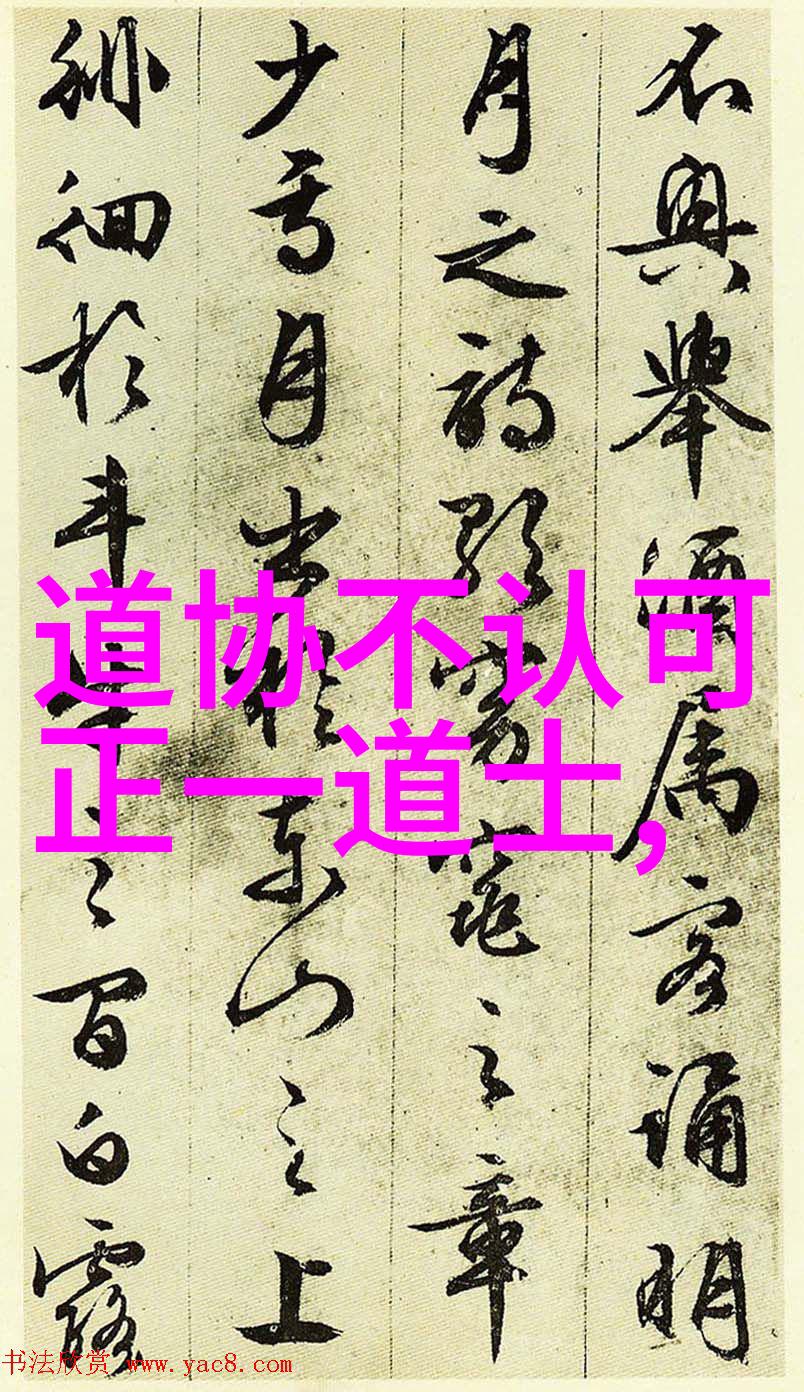 不興舉酒属客誦明
月之詩歌窈窕之章
少焉月出於東山之上
徘徊於斗牛之間白露
道协不认可
正一道士,
书法欣赏 www.yac8.com